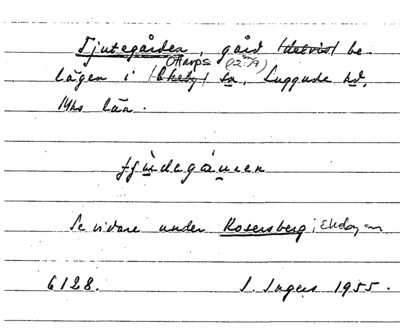 Tjutegården, gård (delvis) be-
lägen i (Ekeby) Ottarps (12:19) sn, Luggude hd,
Mhs län.
Se vidare under Rosersberg i Ekeby sn
6128. I. Ingers 1955.